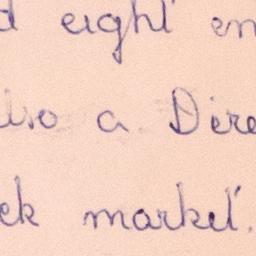 eight en
also a Dire
ek market.